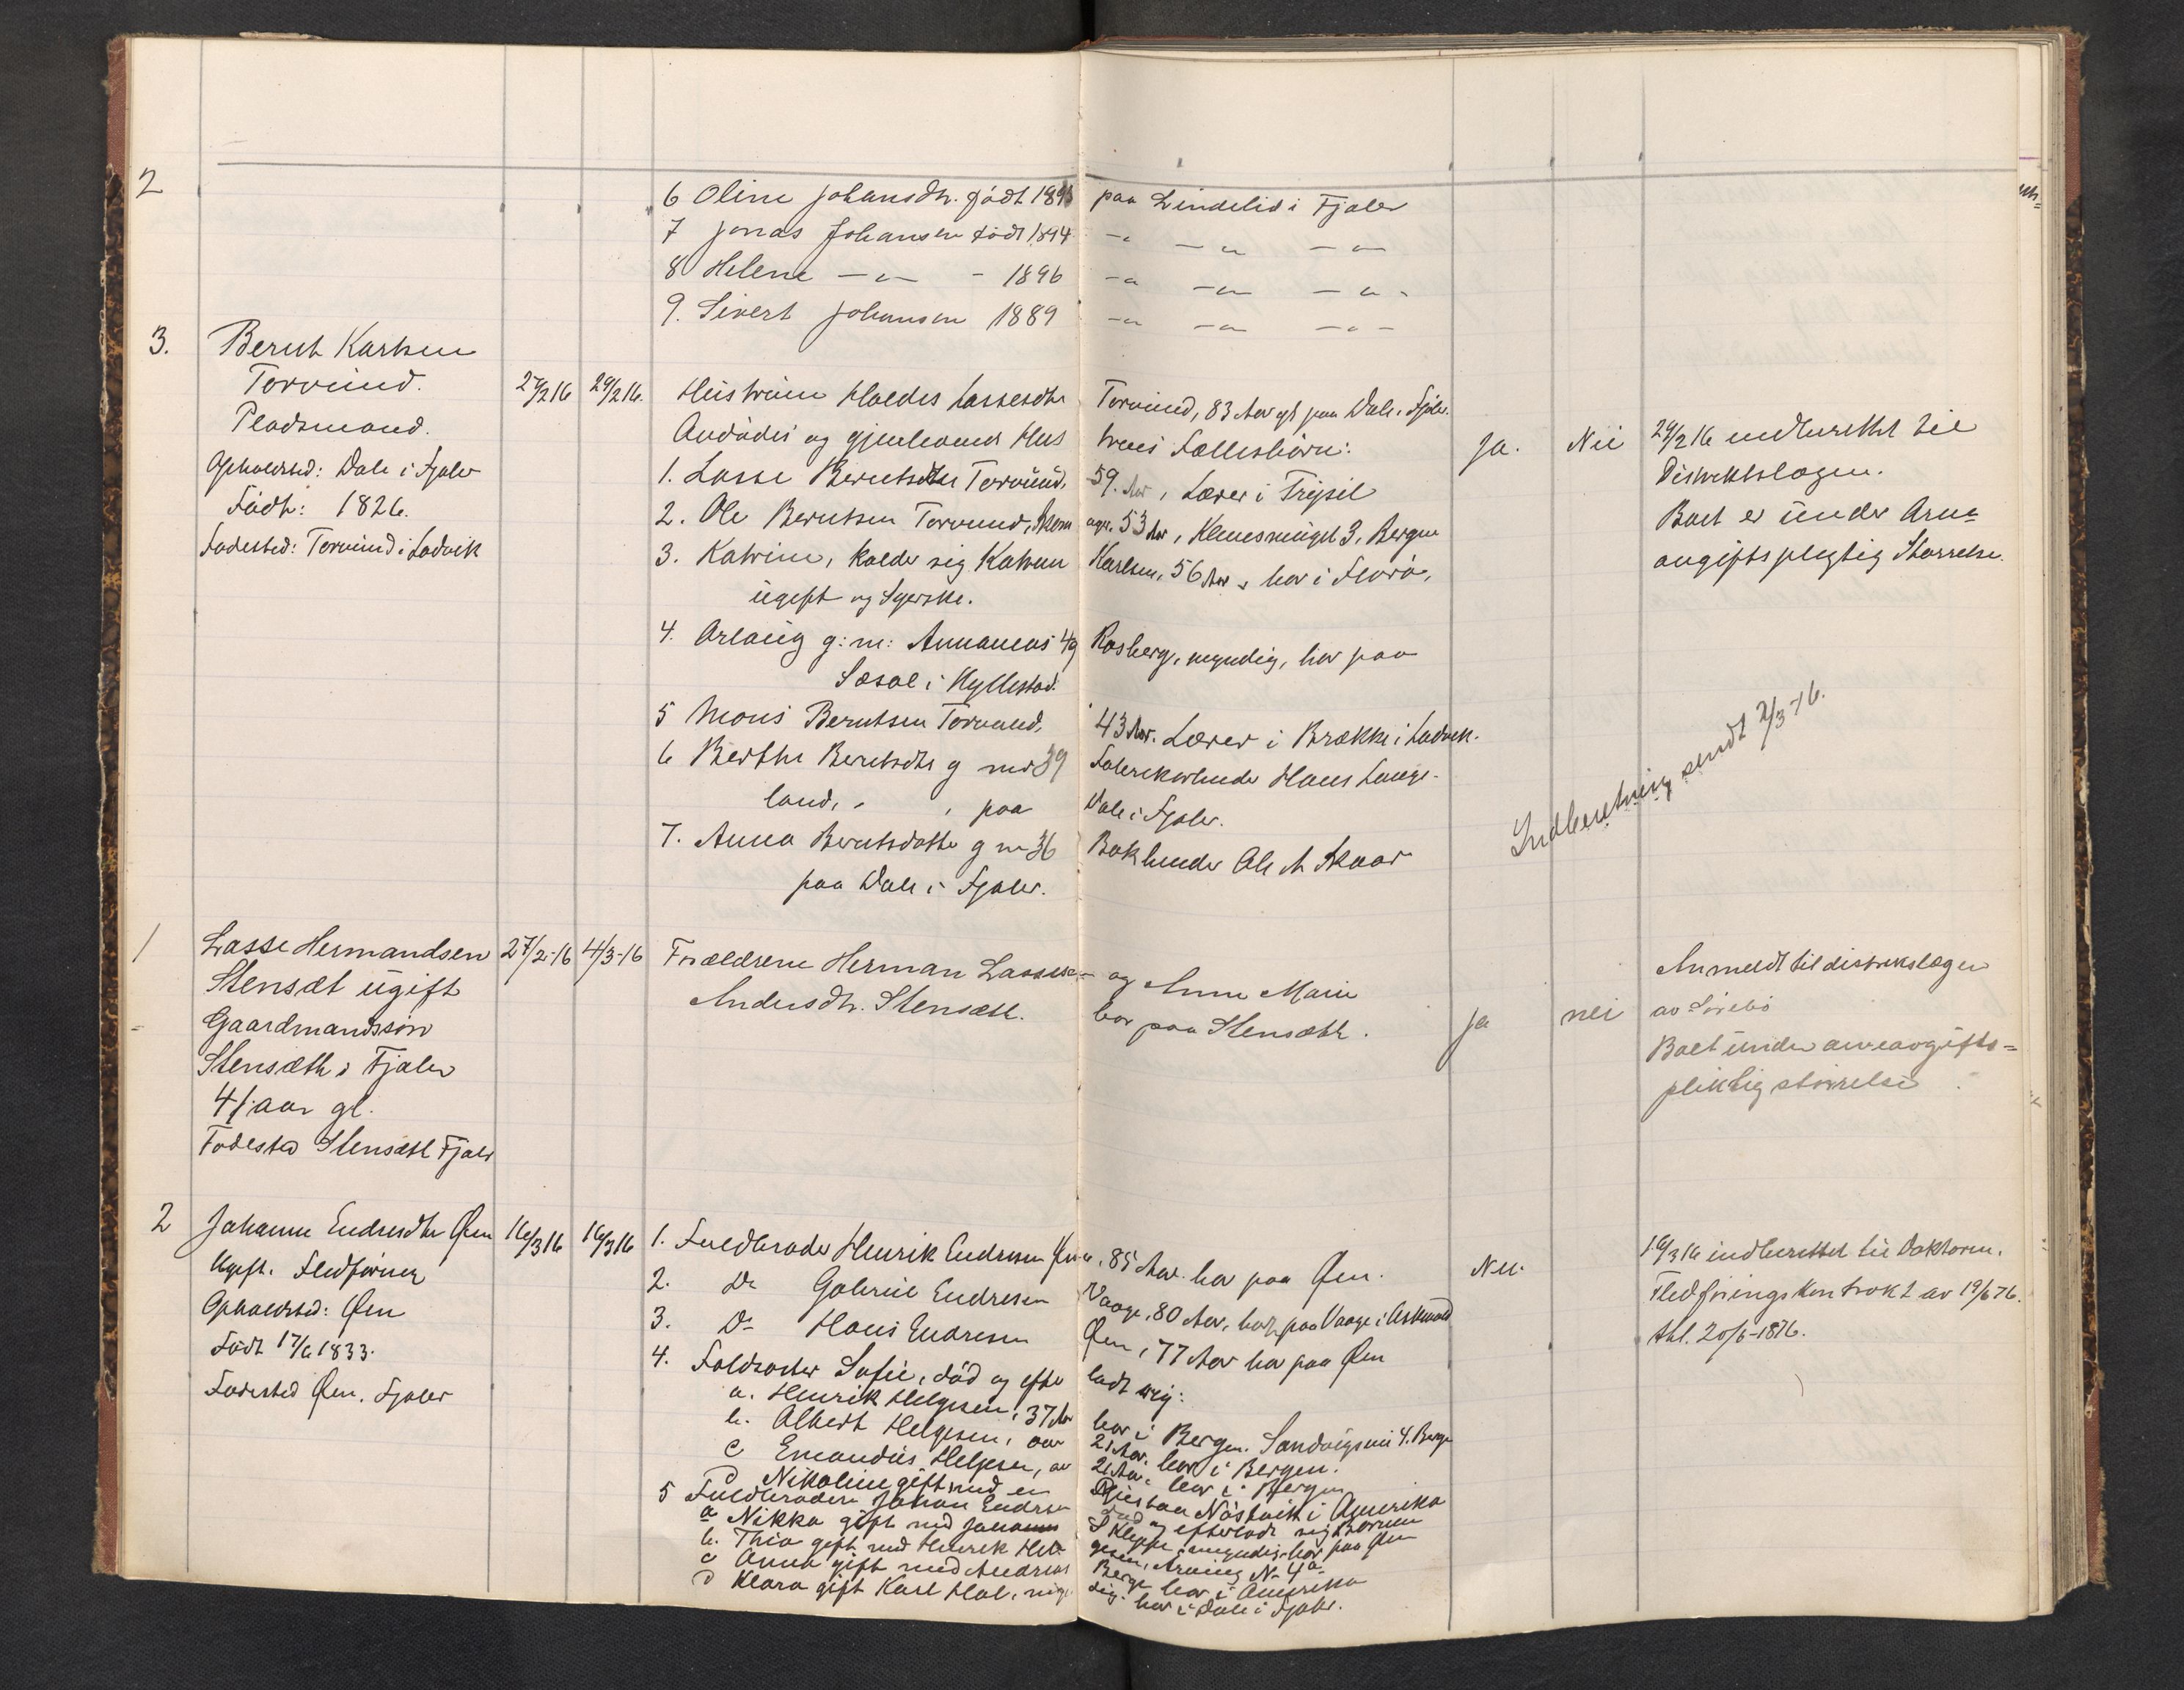 2
6 Oline Johansdtr. født 1893 paa Lindelid i Fjaler
7 Jonas Johansen født 1894 -"- -"- -"-
8 Helene -"- - 1896 -"- -"- -"-
9. Sivert Johansen 1889 -"- -"- -"-
3.
Bernt Karlsen
Torvund.
Pladsmand.
Opholdssted: Dale i Fjaler
Født: 1826.
Fødested: Torvund i Ladvik
27/2 16 29/2 16.
Hustruen Lassesdtr Torvund, 83 Aar gl paa Dale i Fjaler.
Avdødes og gjenlevende Hustrues Fællesbørn:
1. Lasse Berntsen Torvund, 59. Aar, Lærer i Trysil
2. Ole Berntsen Torvund, 53 Aar, 3, Bergen
3. Katrine, kalder sig Karlsen, 56 Aar, bor i Florø,
ugift og Syerske.
4. g: m: Annanias 49 Rosberg, myndig, bor paa
i Hyllestad.
5 Mons Berntsen Torvund, 43 Aar. Lærer i Brække i Ladvik.
6 Berthe Berntsdtr g med 39 Fabrikarbeider Hans Lange-
land, paa Dale i Fjaler.
7. Anna Berntsdatter g m 36 Bokbinder Ole A Skaar
paa Dale i Fjaler.
Ja. Nei
29/2 16 indberettet til
Distriktslægen.
Boet er under Arve-
avgiftspligtig Størrelse.
Indberetning sendt 2/3-16.
1
Lasse Hermandsen
Stensæt ugift
Gaardmandssøn
Stensæth i Fjaler
41 aar gl.
Fødested Stensæth Fjaler
27/2-16 4/3-16
Forældrene Herman Lassesen og Anne Marie
Andersdtr. Stensæth. bor paa Stensæth.
Ja nei
Anmeldt til distrikslægen
av Sørebø
Boet under arveavgifts=
pliktig størrelse.
2
Johanne Endresdtr Øen
Ugift. Fledføring
Opholdssted: Øen
Født 17/6 1833.
Fødested Øen. Fjaler
16/3 16 16/3 16
1. Fuldbroder Henrik Endresen Øen, 85 Aar. bor paa Øen.
2. Do Gabriel Endresen Vaage, 80 Aar, bor paa Vaage i Askvold
3. Do Hans Endresen Øen, 77 Aar bor paa Øen
4. Søster Sofie, død og efterladt sig:
a. Henrik Helgesen, 37 Aar bor i Bergen. Sandvigsvei 4. Bergen
b. Albert Helgesen, over 21 Aar. bor i Bergen.
c Emandus Helgesen, over 21 Aar. bor i Bergen
d Nikoline gift med en i Amerika
5 Fuldbroderen Johan Endresen død og efterladt sig Børnene
a Nikka gift med Johannes S Kleppe, myndig, bor paa Øen
b. Thia gift med Henrik Helgesen, N. 4a
c Anna gift med Andreas Berge bor i Amerika
d Klara gift Karl Hol, myndig. bor i Dale i Fjaler.
Nei.
16/3 16 indberettet til Doktoren.
Fledføringskontrakt av 19/6 76.
thl. 20/6-1876.